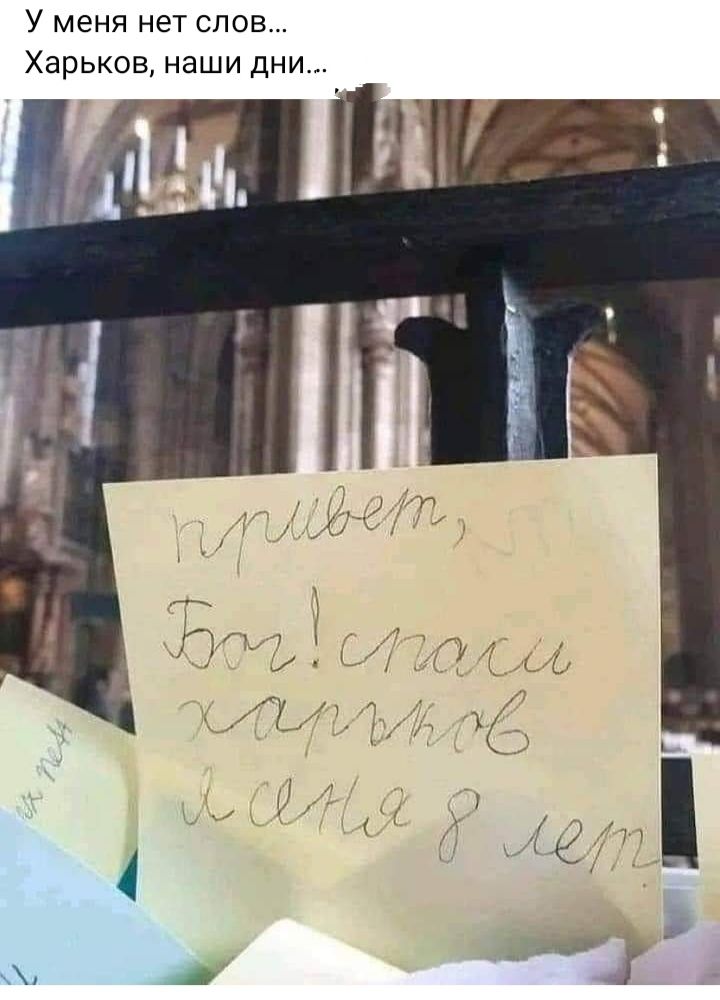 У меня нет слов...
Харьков, наши дни...
привет,
Бог! спаси
харьков
Я Сеня 8 лет